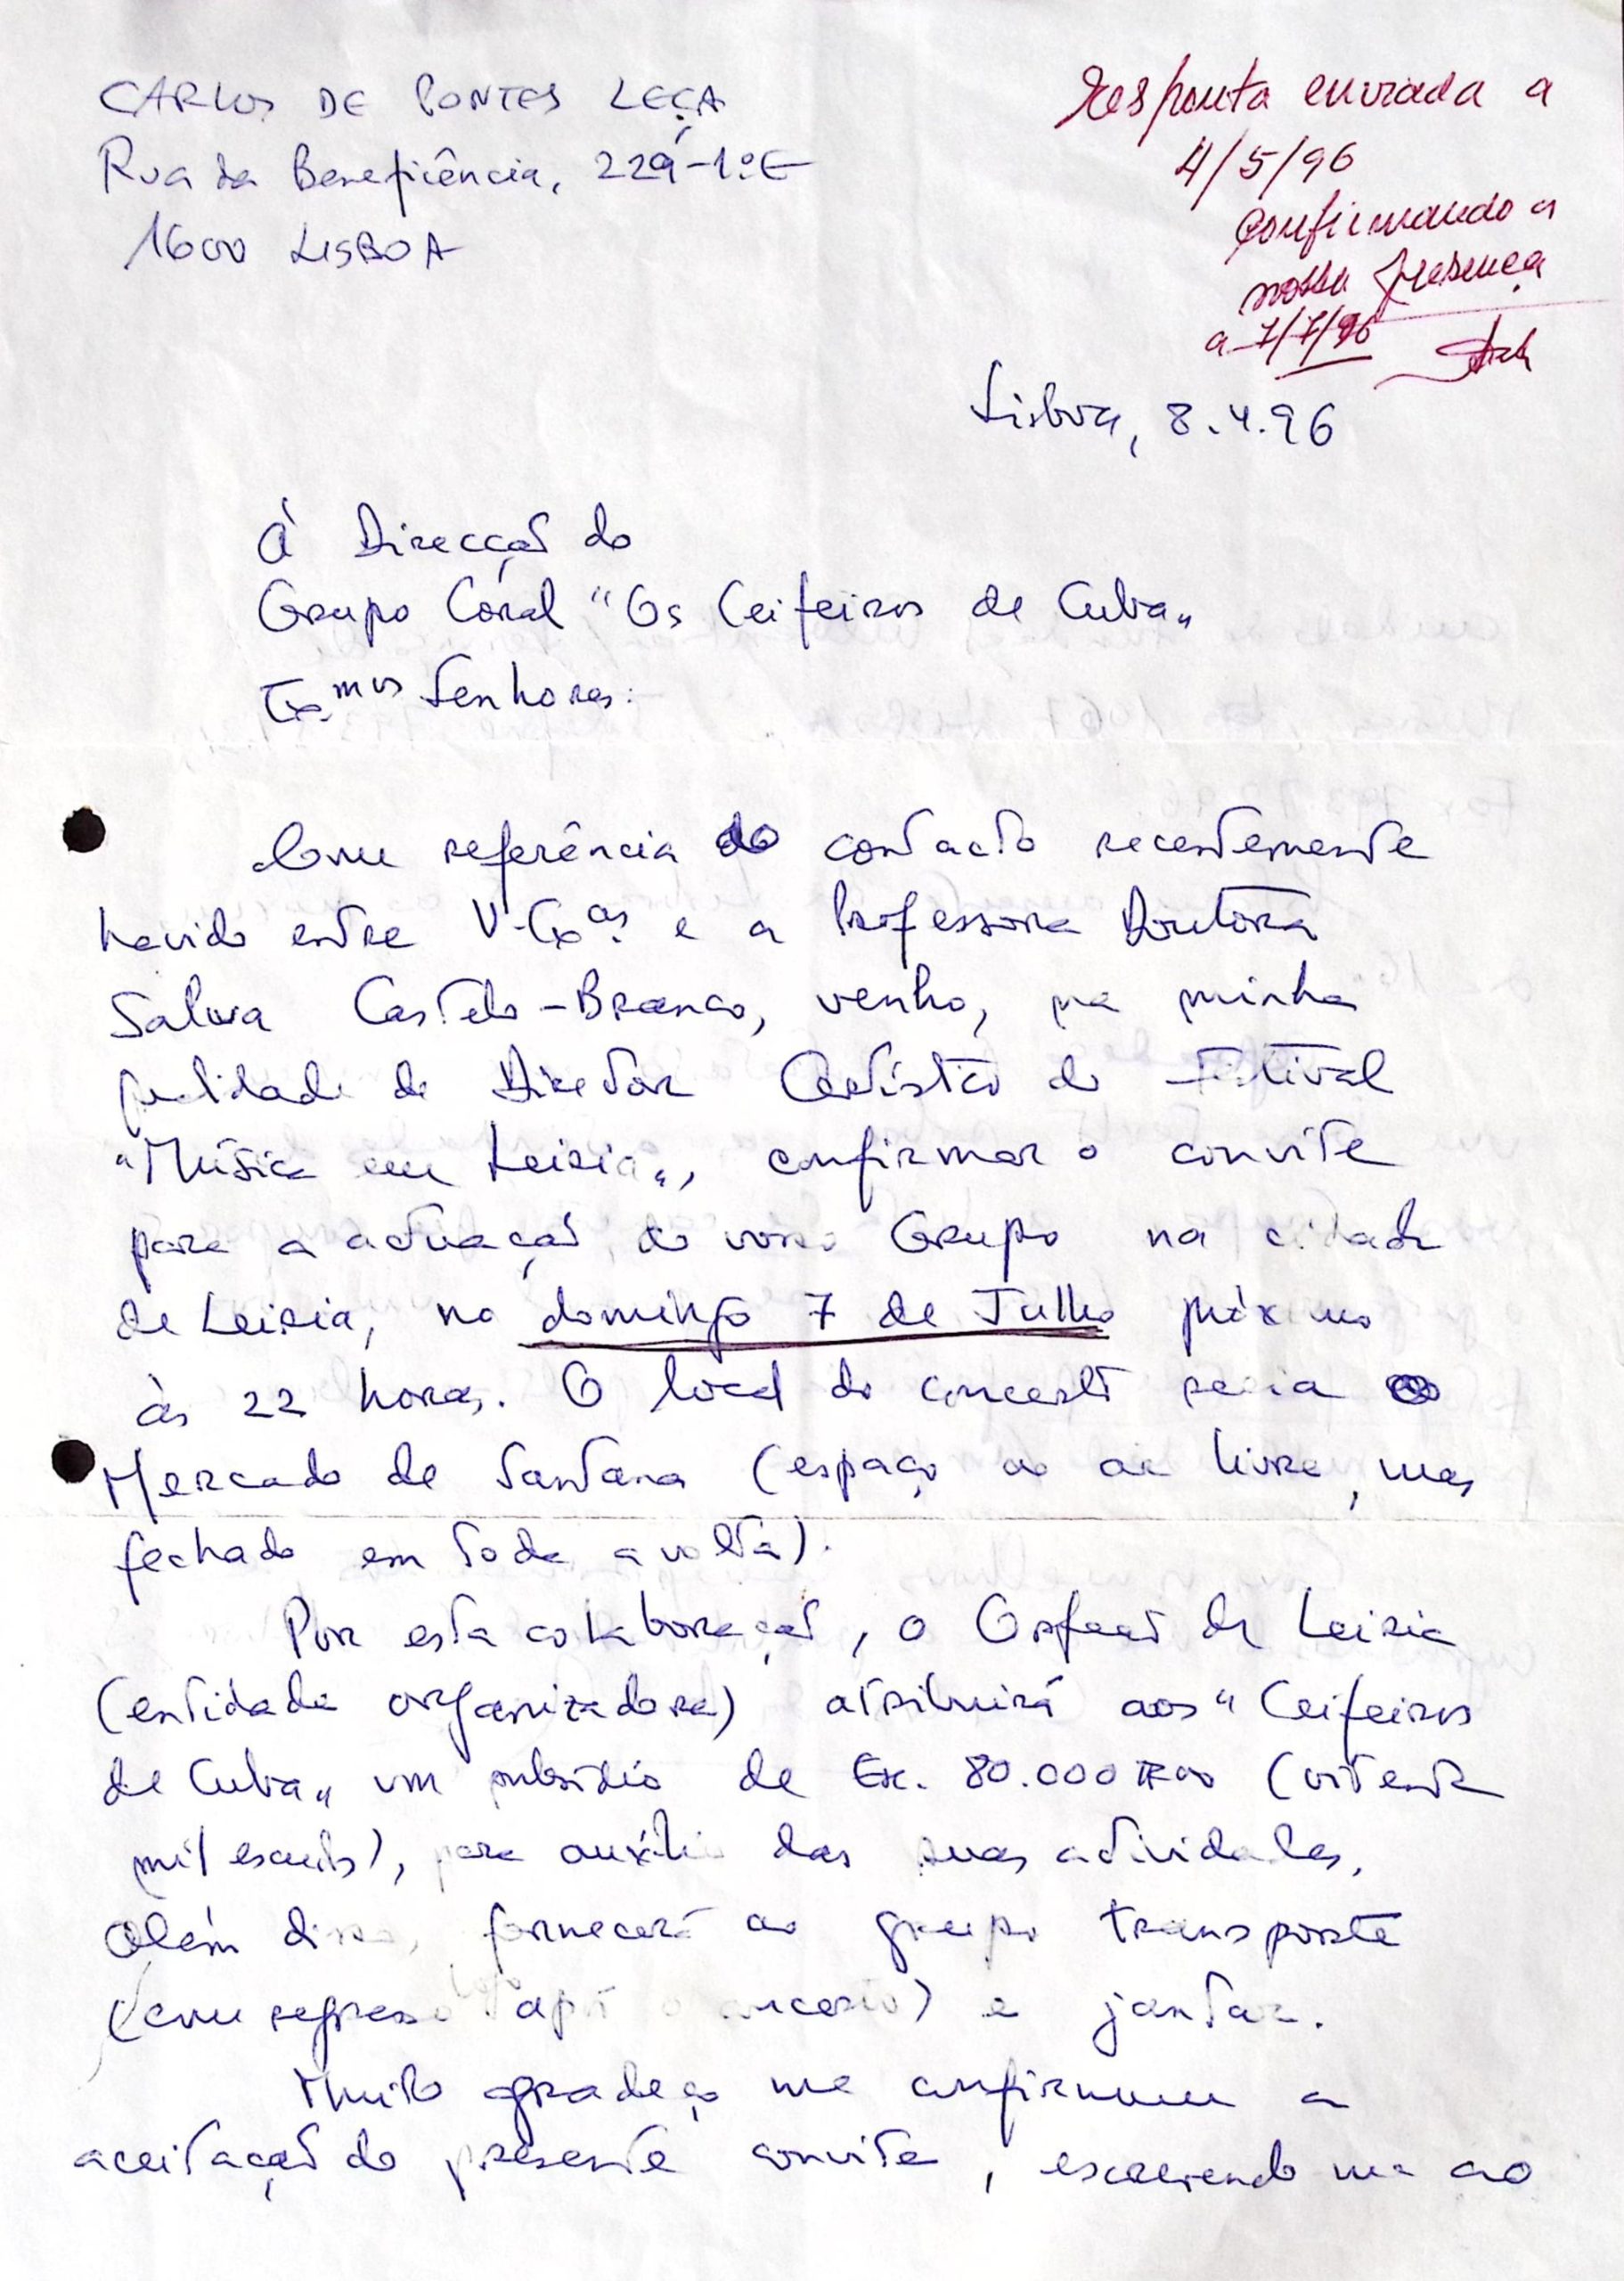 CARLOS DE PONTES LEÇA
Rua da Beneficência, 229-1.º E
1600 LISBOA
Resposta enviada a
4/5/96
confirmando a
nossa presença
a 7/7/96
Lisboa, 8.4.96
À Direcção do
Grupo Coral "Os Ceifeiros de Cuba"
Ex.mos Senhores:
Com referência do contacto recentemente
havido entre V. Ex.as e a Professora Doutora
Salwa Castelo-Branco, venho, na minha
qualidade de Director Artístico do Festival
"Música em Leiria", confirmar o convite
para a actuação do vosso Grupo na cidade
de Leiria, no domingo 7 de Julho próximo
às 22 horas. O local do concerto seria o
Mercado de Santana (espaço ao ar livre, mas
fechado em toda a volta).
Por esta colaboração, o Orfeão de Leiria
(entidade organizadora) atribuirá aos "Ceifeiros
de Cuba" um subsídio de Esc. 80.000$00 (oitenta
mil escudos), para auxílio das suas actividades.
Além disso, fornecerá ao grupo transporte
(com regresso logo após o concerto) e jantar.
Muito agradeço me confirmem a
aceitação do presente convite, escrevendo-me ao